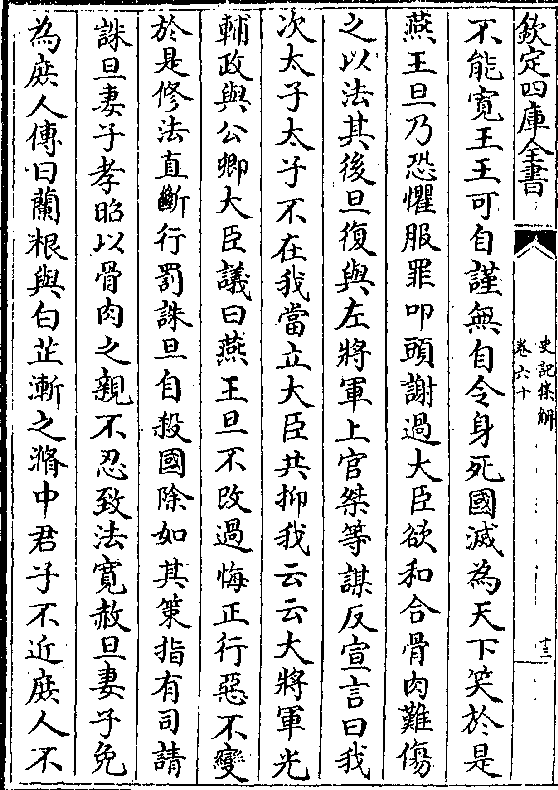 欽定四庫全書
史記集解
卷六十
十三
不能寛王王可自謹無自令身死國滅為天下笑於是
燕王旦乃恐懼服罪叩頭謝過大臣欲和合骨肉難傷
之以法其後旦復與左將軍上官桀等謀反宣言曰我
次太子太子不在我當立大臣共抑我云云大將軍光
輔政與公卿大臣議曰燕王旦不改過悔正行惡不變
於是修法直斷行罰誅旦自殺國除如其策指有司請
誅旦妻子孝昭以骨肉之親不忍致法寛赦旦妻子免
為庶人傳曰蘭根與白芷漸之滫中君子不近庶人不